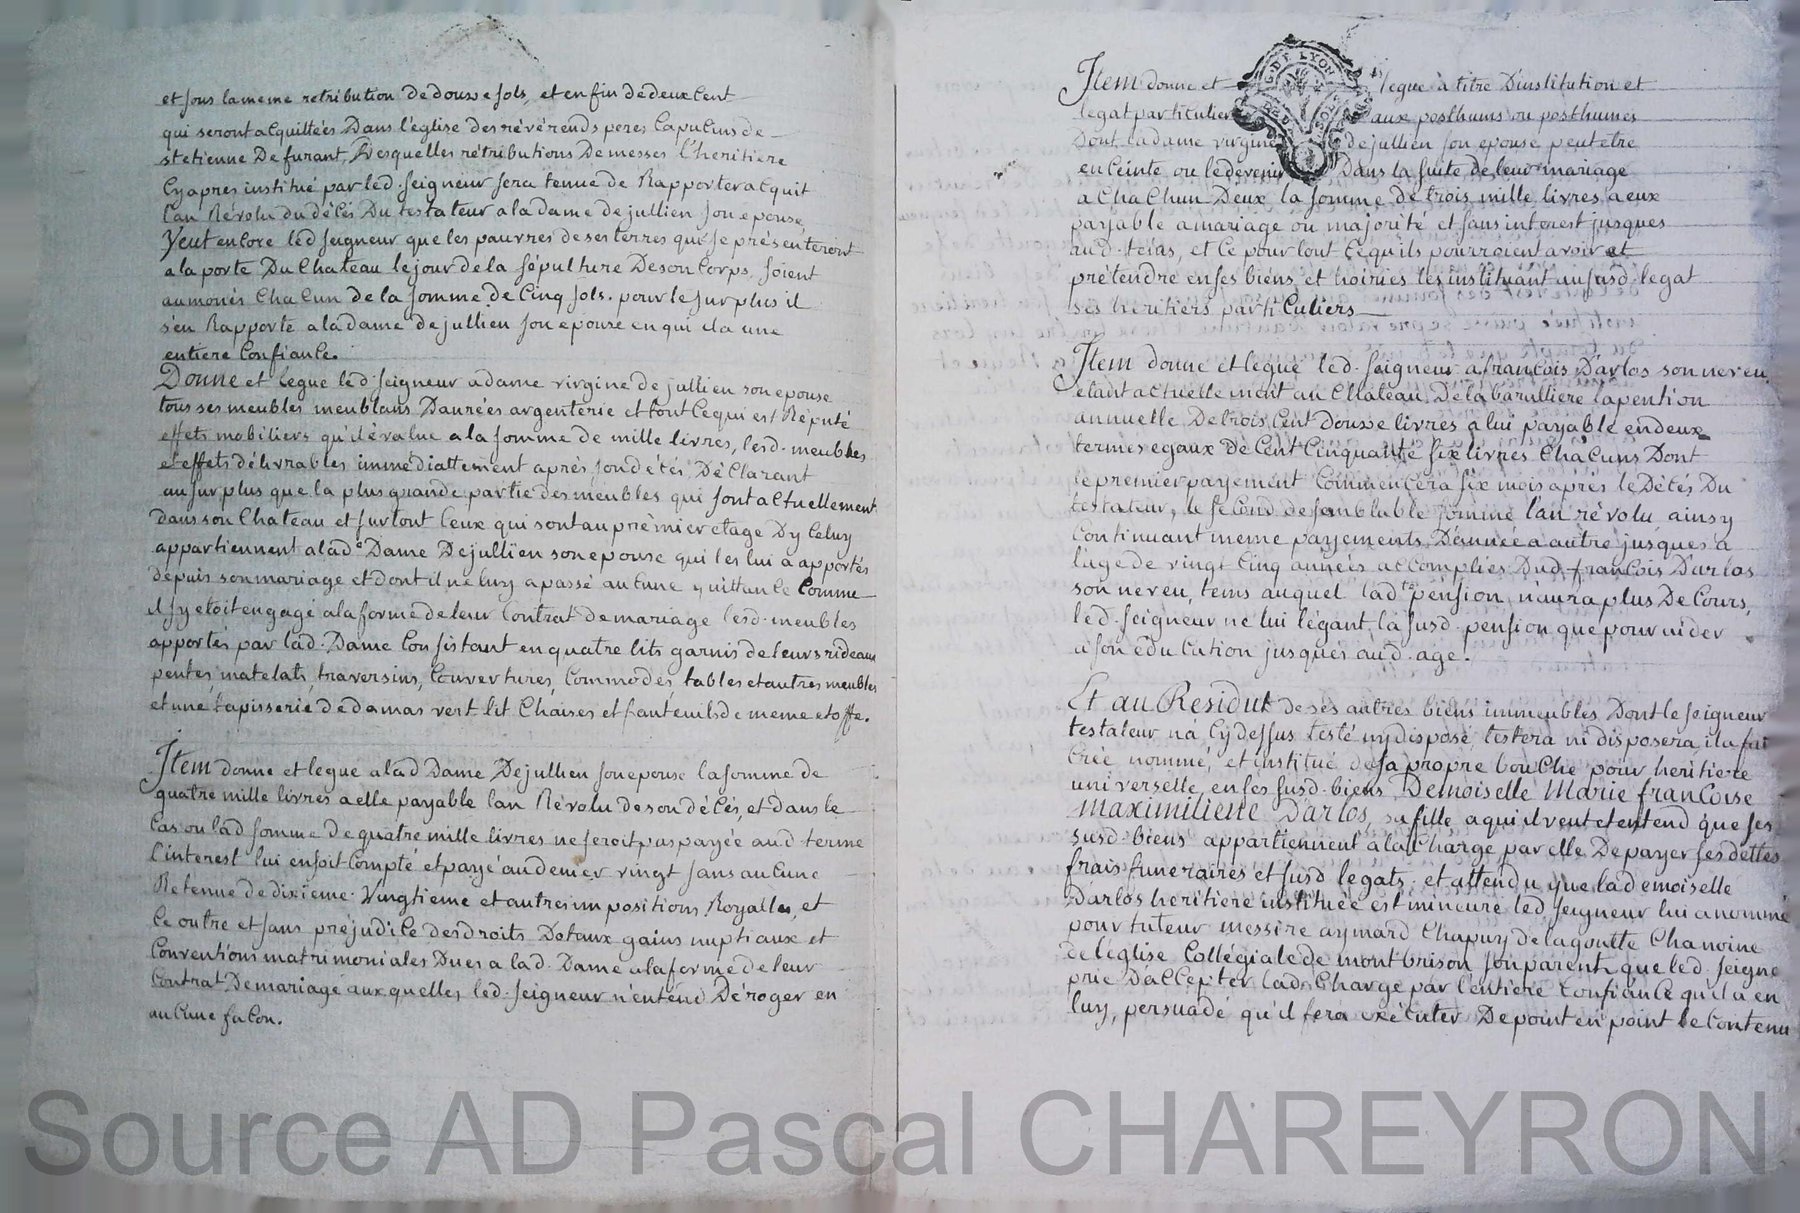 et sous la meme retribution de douse sols, et en fin de deux Cent
qui seront acquittées Dans l'eglise des révérends peres Capucins de
st etienne De furant, Desquelles rétributions De messes l'heritiere
Cy apres institué par led. seigneur sera tenue de Rapporter acquit
l'an Révolu du décés Du testateur a la dame de jullien son epouse,
Veut encore led seigneur que les pauvres de ses terres qui se présenteront
a la porte Du Chateau le jour de la sépulture De son Corps, soient
aumonés Chacun de la somme de Cinq sols. pour le surplus il
s'en Rapporte a la dame de jullien son epouse en qui il a une
entiere Confiance.
Donne et legue led. seigneur a dame virgine de jullien son epouse
tous ses meubles meublans Danrées argenterie et tout Ce qui est Réputé
effets mobiliers qu'il évalue a la somme de mille livres, lesd. meubles
et effets délivrables immédiattement aprés son décés, Déclarant
au surplus que la plus grande partie des meubles qui sont actuellement
dans son Chateau et surtout Ceux qui sont au premier etage Dy Celuy
appartiennent a lade Dame De jullien son epouse qui les lui a apportés
depuis son mariage et dont il ne luy a passé aucune quittance Comme
il s'y etoit engagé a la forme de leur Contrat de mariage lesd. meubles
apportés par lad. Dame Consistant en quatre lits garnis de leurs rideaux
pentes, matelats, traversins, Couvertures, Commodes, tables et autres meubles
et une tapisserie de damas vert lit Chaises et fauteuils de meme etoffe.
Item donne et legue a lad Dame De jullien son epouse la somme de
quatre mille livres a elle payable l'an Révolu de son décés, et dans le
Cas ou lad somme de quatre mille livres ne seroit pas payée aud. terme
l'interest lui en soit Compté et payé au denier vingt sans aucune
Retenue de dixieme Vingtieme et autres impositions Royalles, et
Ce outre et sans préjudice des droits Dotaux gains nuptiaux et
Conventions matrimoniales Dues a lad. Dame a la forme de leur
Contrat De mariage aux quelles led. seigneur n'entend Déroger en
aucune facon.
Item donne et legue à titre D'institution et
legat particulier aux posthums ou posthumes
Dont la dame virgine de jullien son epouse peut etre
enceinte ou le devenir Dans la suite de leur mariage
a Chachun Deux la somme de trois mille livres a eux
payable a mariage ou majorité et sans interest jusques
aud. tems, et Ce pour tout Ce qu'ils pourroient avoir et
prétendre en ses biens et hoiries les instituant au susd. legat
ses heritiers particuliers
Item donne et legue led. seigneur a francois Darlos son neveu
etant actuellement au Chateau De la barulliere la pention
annuelle De trois Cent douse livres a lui payable en deux
termes egaux de Cent Cinquante six livres Chacuns Dont
le premier payement Commencera six mois aprés le Décés Du
testateur, le second de semblable somme l'an révolu, ainsy
Continuant meme payements, D'année a autre jusques a
l'age de vingt Cinq années accomplies Dud. francois Darlos
son neveu, tems auquel ladte pension n'aura plus De Cours,
led. seigneur ne lui légant la susd. pension que pour aider
a son education jusques aud. age.
Et au Residut de ses autres biens immeubles Dont le seigneur
testateur n'a Cy dessus testé ny disposé, testera ni disposera, il a fait
Créé nommé, et institué de sa propre bouche pour heritiere
universelle en ses susd. biens Demoiselle Marie francoise
Maximiliene Darlos, sa fille a qui il veut et entend que ses
susd. biens appartiennent a la Charge par elle De payer ses dettes
frais funeraires et susd. legats. et attendu que la demoiselle
Darlos heritiere instituée est mineure led. seigneur lui a nommé
pour tuteur messire aymard Chapuy de la goutte Chanoine
de l'eglise Collégiale de montbrison son parent que led. seigne
prie D'accepter lad. Charge par l'entiere Confiance qu'il a en
luy, persuadé qu'il fera exécuter De point en point le Contenu
G. DE LYON
Source AD Pascal CHAREYRON